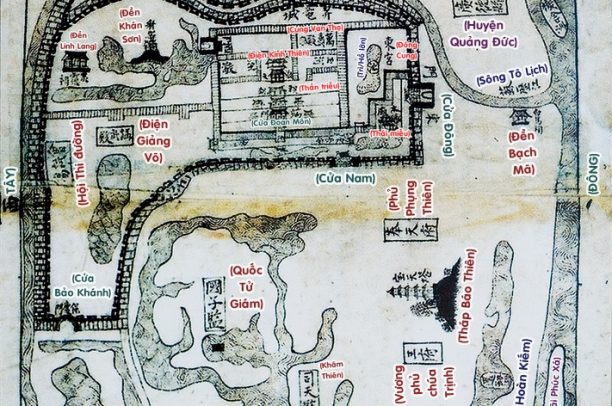 (Đền
Khán
Sơn)
(Đền
Linh Lang)
(Cung Vạn Thọ)
(Điện Kính Thiên)
(Thần triều)
(Cửa Đoan Môn)
(Đông
Cung)
(Thái miếu)
(Huyện
Quảng Đức)
(Sông Tô Lịch)
(Cửa Đông)
(Đền
Bạch
Mã)
(Điện
Giảng
Võ)
(Hội Thí đường)
(TÂY)
(ĐÔNG)
(Cửa Nam)
(Phủ
Phụng
Thiên)
奉天府
(Cửa
Bảo Khánh)
(Quốc
Tử
Giám)
國子監
(Tháp Báo Thiên)
(Khâm
Thiên)
(Vương
phủ
chúa
Trịnh)
王府
Hoàn Kiếm)
ái Phúc Xá)
東宮
講武殿